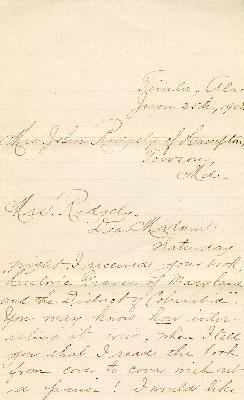 Ala.
June 25th, 190
Mrs. John Ridgely of Hampton,
Towson,
Md.
Mrs. Ridgely,
Dear Madam:
Saturday
night I received your book
"Historic Graves of Maryland
and the District of Columbia".
You may know how inter-
esting it was, when I tell
you that I read the book
from cover to cover without
a pause! I would like